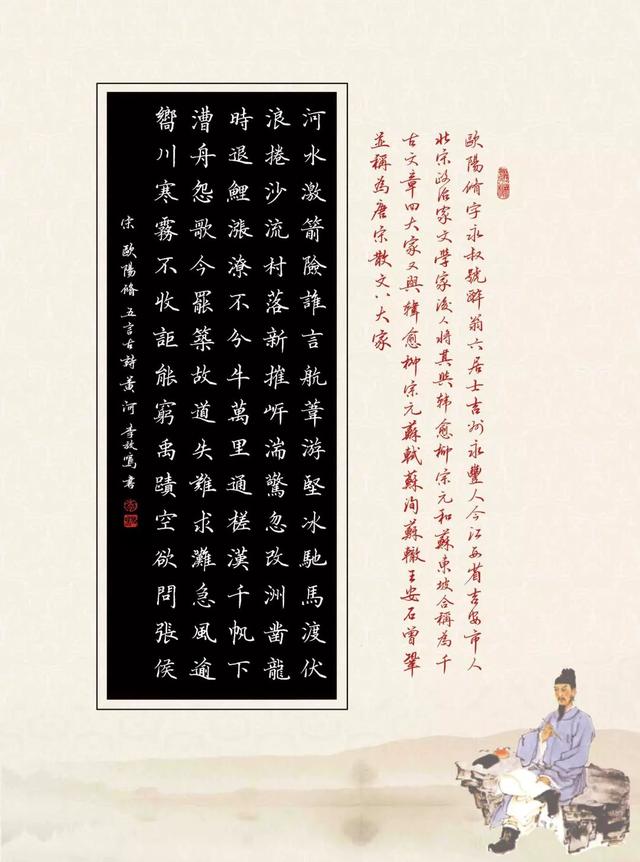 歐陽脩字永叔號醉翁六居士吉州永豐人今江西省吉安市人
北宋政治家文學家後人將其與韓愈柳宗元和蘇東坡合稱為千
古文章四大家又與韓愈柳宗元蘇軾蘇洵蘇轍王安石曾鞏
並稱為唐宋散文八大家
河水激箭險誰言航葦游堅冰馳馬渡伏
浪捲沙流村落新摧岸湍驚忽改洲鑿龍
時退鯉漲潦不分牛萬里通槎漢千帆下
漕舟怨歌今罷築故道失難求灘急風逾
嚮川寒霧不收詎能窮禹蹟空欲問張侯
宋歐陽脩五言古詩黃河李放鳴書